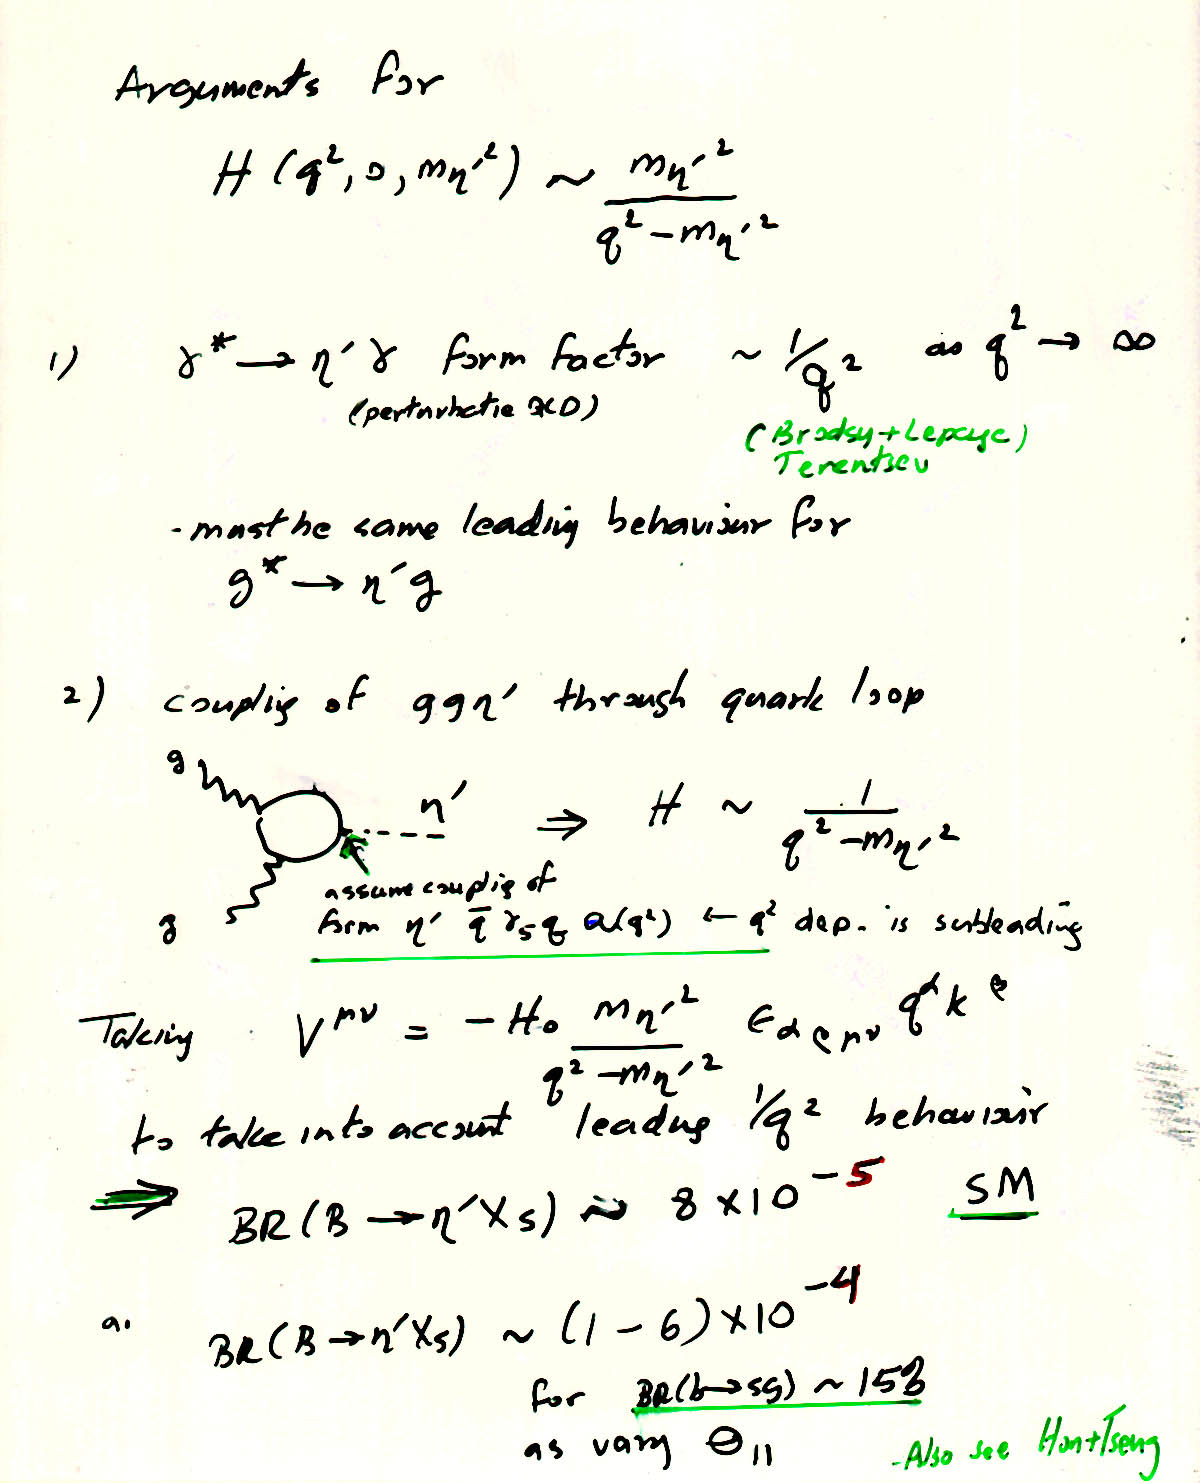 Arguments for
H (q², 0, mη'²) ~ mη'² / q² - mη'²
1) γ* → η'γ form factor ~ 1/q² as q² → ∞
(perturbative QCD)
(Brodsy + Lepage)
Terentsev
- must be same leading behaviour for
g* → η'g
2) coupling of ggη' through quark loop
g
η' ⇒ H ~ 1 / q² - mη'²
assume couplig of
g form η' q̄ γ₅ q a(q²) ← q² dep. is subleading
Taking V^μν = - H₀ mη'² / q² - mη'² ε_αβμν q^α k^β
to take into account leading 1/q² behaviour
⇒ BR(B → η'Xs) ≈ 8 × 10⁻⁵ SM
BR(B → η'Xs) ~ (1 - 6) × 10⁻⁴
for BR(b → sg) ~ 15%
as vary θ₁₁
- Also see Hou + Tseng